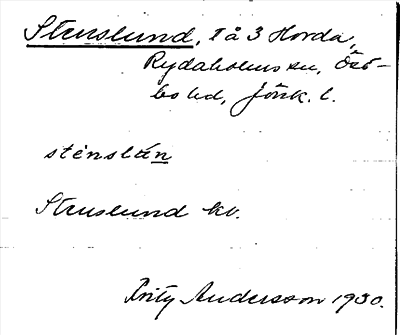 Stenslund, Tå 3 Horda,
Rydaholms sn, Öst-
bo hd, Jönk. l.
sténslán
Stenslund kv.
Andersson 1930.